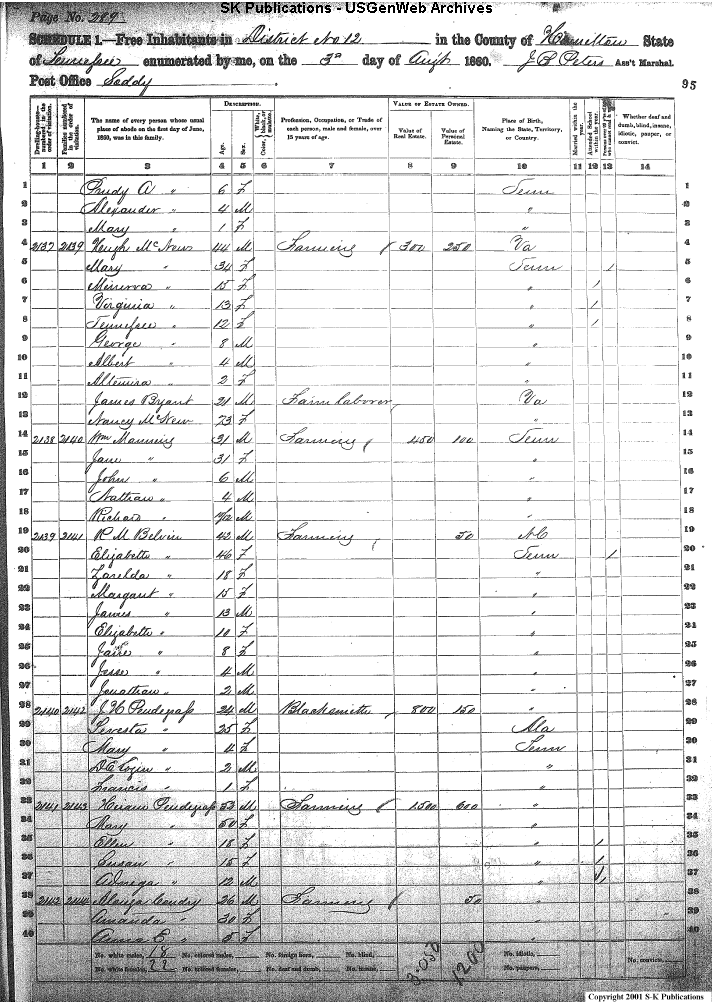 SK Publications - USGenWeb Archives
Page No. 289
SCHEDULE 1.—Free Inhabitants in District No 12 in the County of Hamilton State
of Tennessee enumerated by me, on the 3d day of Augt 1860. J B Peters Ass't Marshal.
Post Office Soddy
95
Dwelling-houses—numbered in the order of visitation.
Families numbered in the order of visitation.
The name of every person whose usual place of abode on the first day of June, 1860, was in this family.
DESCRIPTION.
Age.
Sex.
Color, White, black, or mulatto.
Profession, Occupation, or Trade of each person, male and female, over 15 years of age.
VALUE OF ESTATE OWNED.
Value of Real Estate.
Value of Personal Estate.
Place of Birth, Naming the State, Territory, or Country.
Married within the year.
Attended School within the year.
Whether deaf and dumb, blind, insane, idiotic, pauper, or convict.
1 2 3 4 5 6 7 8 9 10 11 12 13 14
1 Prudy A " 6 F Tenn 1
2 Alexander " 4 M " 2
3 Mary " 1 F " 3
4 2137 2139 Hugh McNew 44 M Farming 300 250 Va 4
5 Mary " 34 F Tenn / 5
6 Minerva " 15 F " / 6
7 Virginia " 13 F " / 7
8 Tennessee " 12 F " / 8
9 George " 8 M " 9
10 Albert " 4 M " 10
11 " 2 F " 11
12 James Bryant 21 M Farm Laborer Va 12
13 Nancy McNew 73 F " 13
14 2138 2140 Wm Manning 31 M Farming 450 100 Tenn 14
15 Jane " 31 F " 15
16 John " 6 M " 16
17 Nathan " 4 M " 17
18 Richard " /12 M " 18
19 2139 2141 R M Belvin 42 M Farming 50 NC 19
20 Elizabeth " 46 F Tenn / 20
21 Zarelda " 18 F " 21
22 Margaret " 15 F " 22
23 James " 13 M " 23
24 Elizabeth " 10 F " 24
25 Jane " 8 F " 25
26 Jesse " 4 M " 26
27 Jonathan " 2 M " 27
28 2140 2142 J H Pendegrass 24 M Blacksmith 800 150 " 28
29 " 25 F Ala 29
30 Mary " 4 F Tenn 30
31 " 2 M " 31
32 Francis " 1 F " 32
33 2141 2143 Hiram Pendegrass 53 M Farming 1500 600 " 33
34 Mary " 50 F " 34
35 Ellen " 18 F " / 35
36 Susan " 15 F " / 36
37 " 12 M " / 37
38 2142 2144 26 M Farming 50 " 38
39 Amanda " 30 F " 39
40 Anna E " 5 F " 40
No. white males, 18 No. colored males, No. foreign born, No. blind, No. idiotic, No. convicts,
No. white females, 22 No. colored females, No. deaf and dumb, No. insane, 3.050 1200 No. paupers,
Copyright 2001 S-K Publications